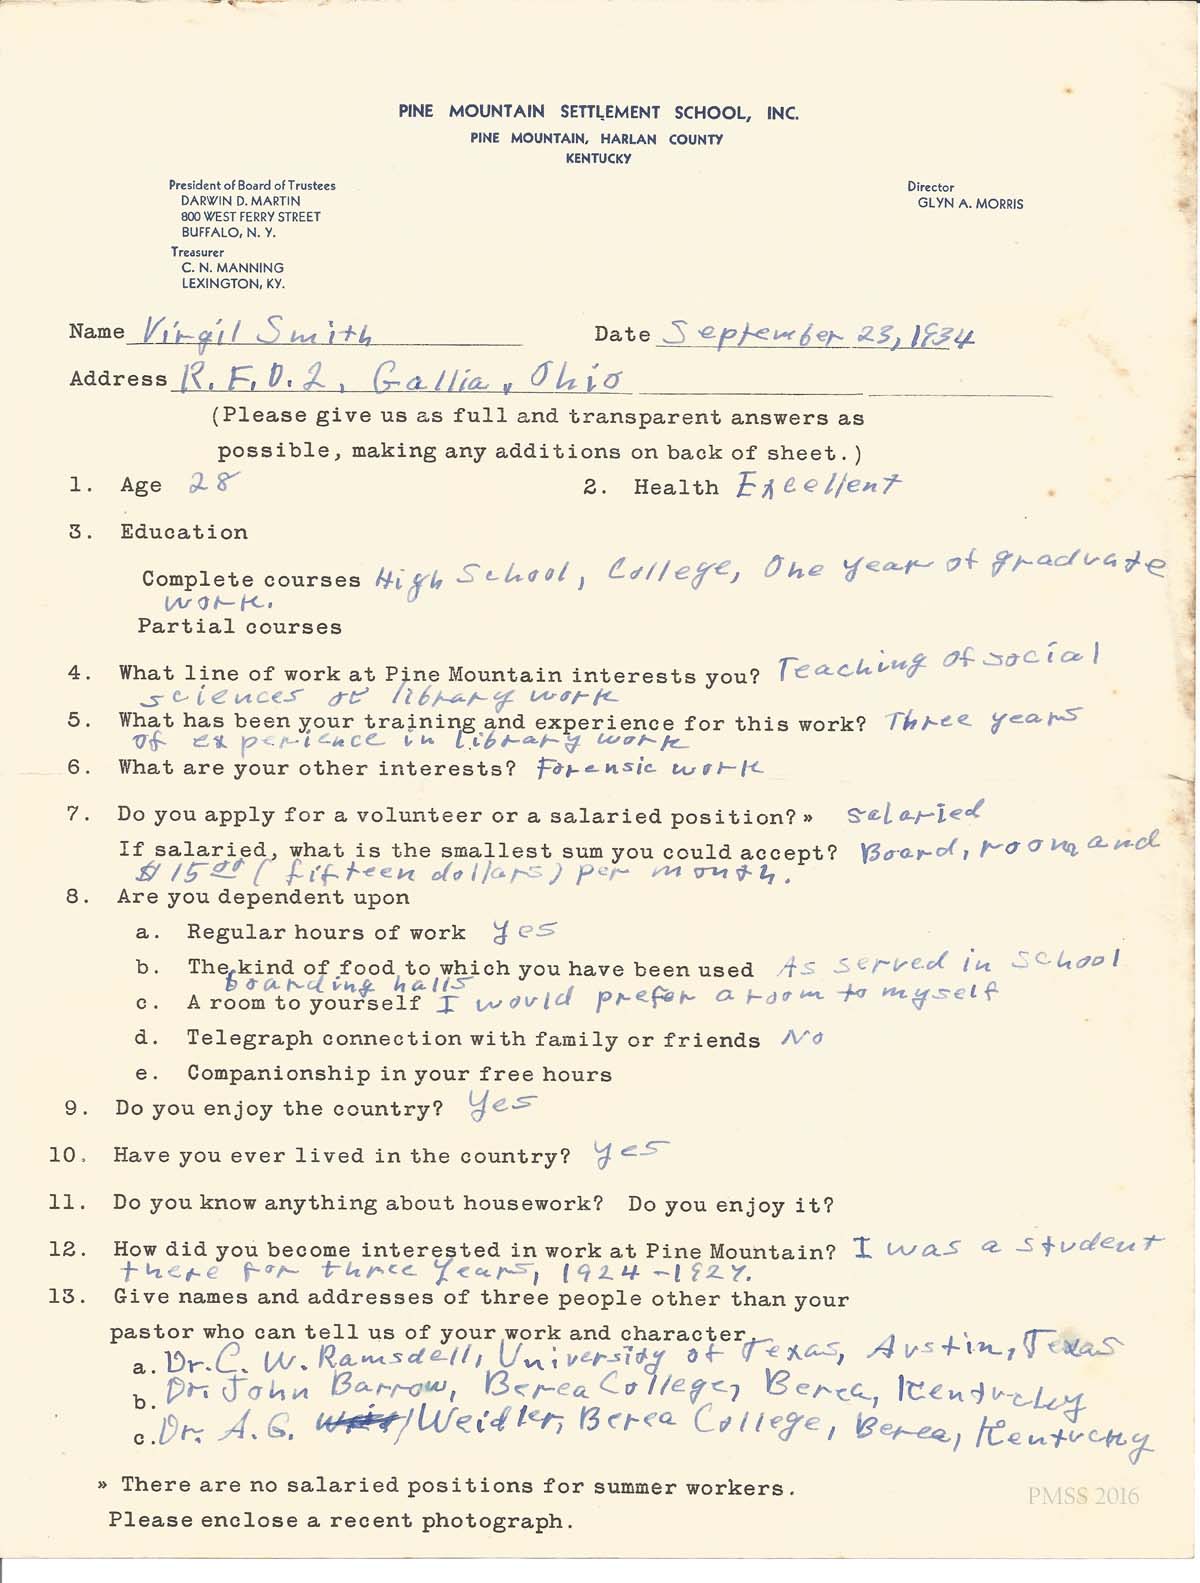 PINE MOUNTAIN SETTLEMENT SCHOOL, INC.
PINE MOUNTAIN, HARLAN COUNTY
KENTUCKY
President of Board of Trustees
DARWIN D. MARTIN
800 WEST FERRY STREET
BUFFALO, N. Y.
Treasurer
C. N. MANNING
LEXINGTON, KY.
Director
GLYN A. MORRIS
Name Virgil Smith Date September 23, 1934
Address R.F.D. 2, Gallia, Ohio
(Please give us as full and transparent answers as
possible, making any additions on back of sheet.)
1. Age 28 2. Health Excellent
3. Education
Complete courses High School, College, One year of graduate
work.
Partial courses
4. What line of work at Pine Mountain interests you? Teaching of social
sciences or library work
5. What has been your training and experience for this work? Three years
of experience in library work
6. What are your other interests? Forensic work
7. Do you apply for a volunteer or a salaried position?» salaried
If salaried, what is the smallest sum you could accept? Board, room, and
$15.00 (fifteen dollars) per month.
8. Are you dependent upon
a. Regular hours of work yes
b. The kind of food to which you have been used As served in school
boarding halls
c. A room to yourself I would prefer a room to myself
d. Telegraph connection with family or friends No
e. Companionship in your free hours
9. Do you enjoy the country? Yes
10. Have you ever lived in the country? yes
11. Do you know anything about housework? Do you enjoy it?
12. How did you become interested in work at Pine Mountain? I was a student
there for three years, 1924-1927.
13. Give names and addresses of three people other than your
pastor who can tell us of your work and character.
a. Dr. C. W. Ramsdell, University of Texas, Austin, Texas
b. Dr. John Barrow, Berea College, Berea, Kentucky
c. Dr. A. G. Weidler, Berea College, Berea, Kentucky
» There are no salaried positions for summer workers.
Please enclose a recent photograph.
PMSS 2016